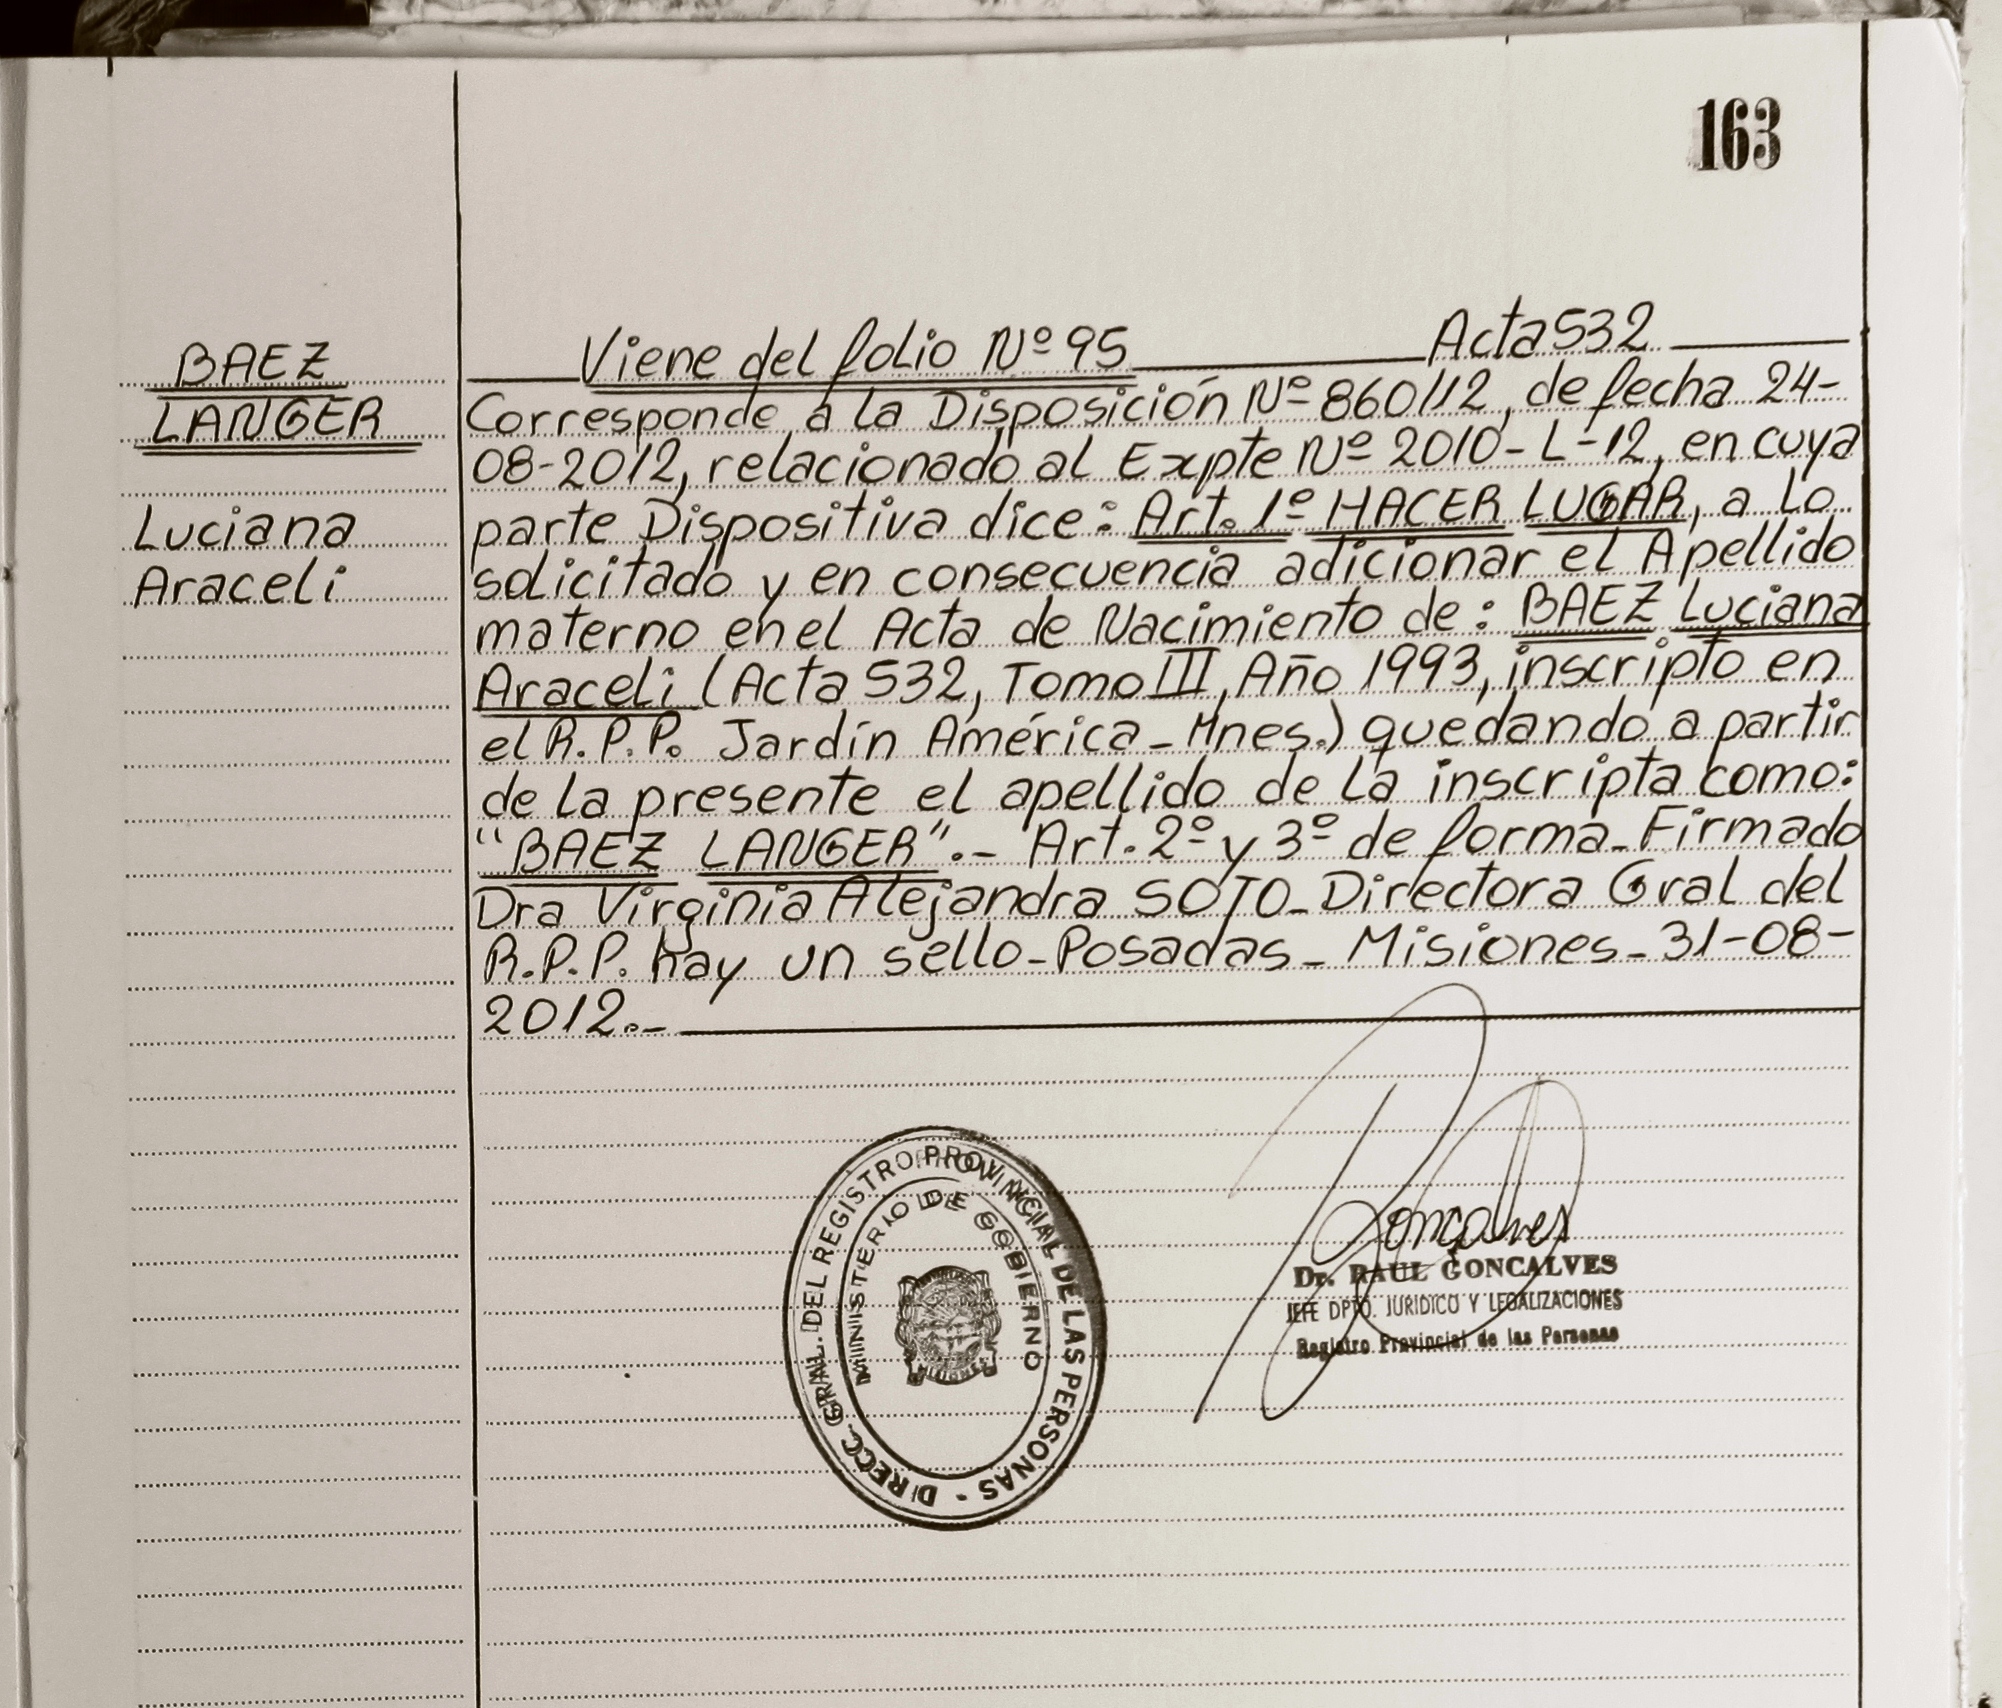 163
BAEZ
LANGER
Luciana
Araceli
Viene del folio Nº 95 Acta 532
Corresponde a la Disposición Nº 860/12, de fecha 24-
08-2012, relacionado al Expte Nº 2010-L-12, en cuya
parte Dispositiva dice: Art. 1º HACER LUGAR, a lo
solicitado y en consecuencia adicionar el Apellido
materno en el Acta de Nacimiento de: BAEZ Luciana
Araceli (Acta 532, Tomo III, Año 1993, inscripto en
el R.P.P. Jardín América - Mnes.) quedando a partir
de la presente el apellido de la inscripta como:
"BAEZ LANGER".- Art. 2º y 3º de forma - Firmado
Dra Virginia Alejandra SOTO - Directora Gral del
R.P.P. hay un sello - Posadas - Misiones - 31-08-
2012.-
DIRECC. GRAL. DEL REGISTRO PROVINCIAL DE LAS PERSONAS -
MINISTERIO DE GOBIERNO
MISIONES
Goncalves
Dr. RAUL GONCALVES
JEFE DPTO. JURIDICO Y LEGALIZACIONES
Registro Provincial de las Personas